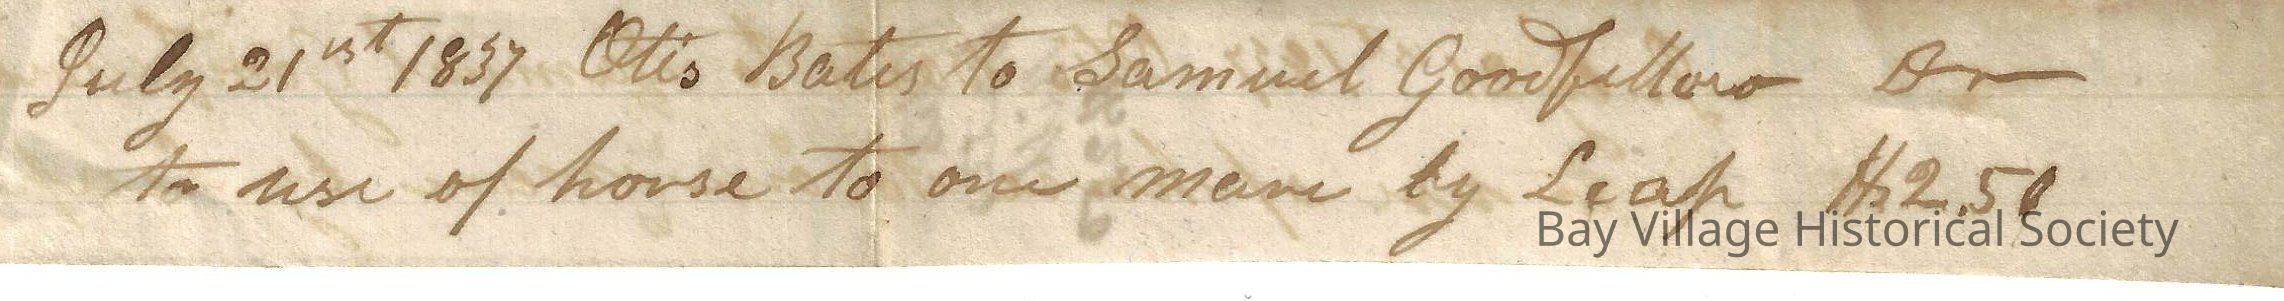 July 21st 1837 Otis Bates to Samuel Goodfellow Dr
to use of horse to one mare by Leap $2.50
Bay Village Historical Society